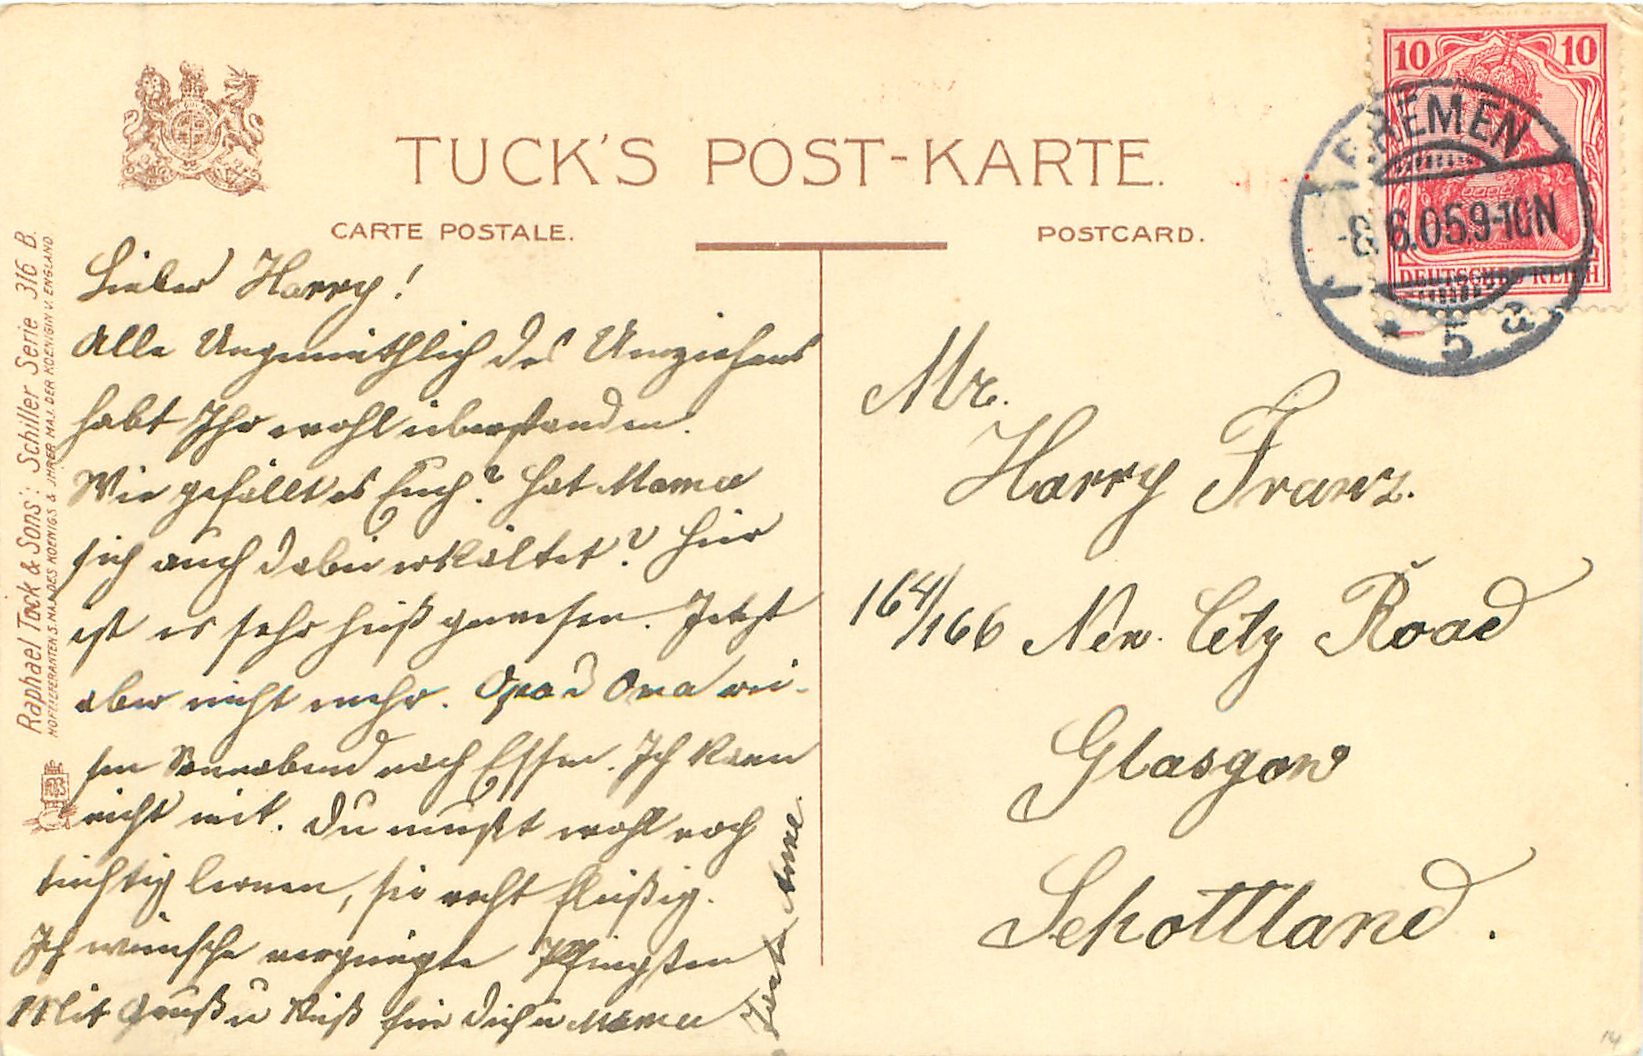 TUCK'S POST-KARTE.
CARTE POSTALE.
POSTCARD.
10 10
DEUTSCHES REICH
BREMEN
-8.6.05.9-10N
* 5 a
Raphael Tuck & Sons': Schiller Serie 316 B.
HOFLIEFERANTEN S. MAJ. DES KOENIGS & IHRER MAJ. DER KOENIGIN V. ENGLAND
Lieber Harry!
Alle Ungemüthlich des Umziehens
habt Ihr wohl überstanden.
Wie gefällt es Euch? Hat Mama
sich auch dabei erkältet? Hier
ist es sehr heiß gewesen. Jetzt
aber nicht mehr. Opa u Oma rei-
sen Sonnabend nach Essen. Ich kann
nicht mit. Du mußt wohl noch
tüchtig lernen, sei recht fleißig.
Ich wünsche vergnügte Pfingsten
Mit Gruß u Kuß für Dich u Mama
Tante Anne.
Mr.
Harry Franz.
164/166 New. City Road
Glasgow
Schottland.